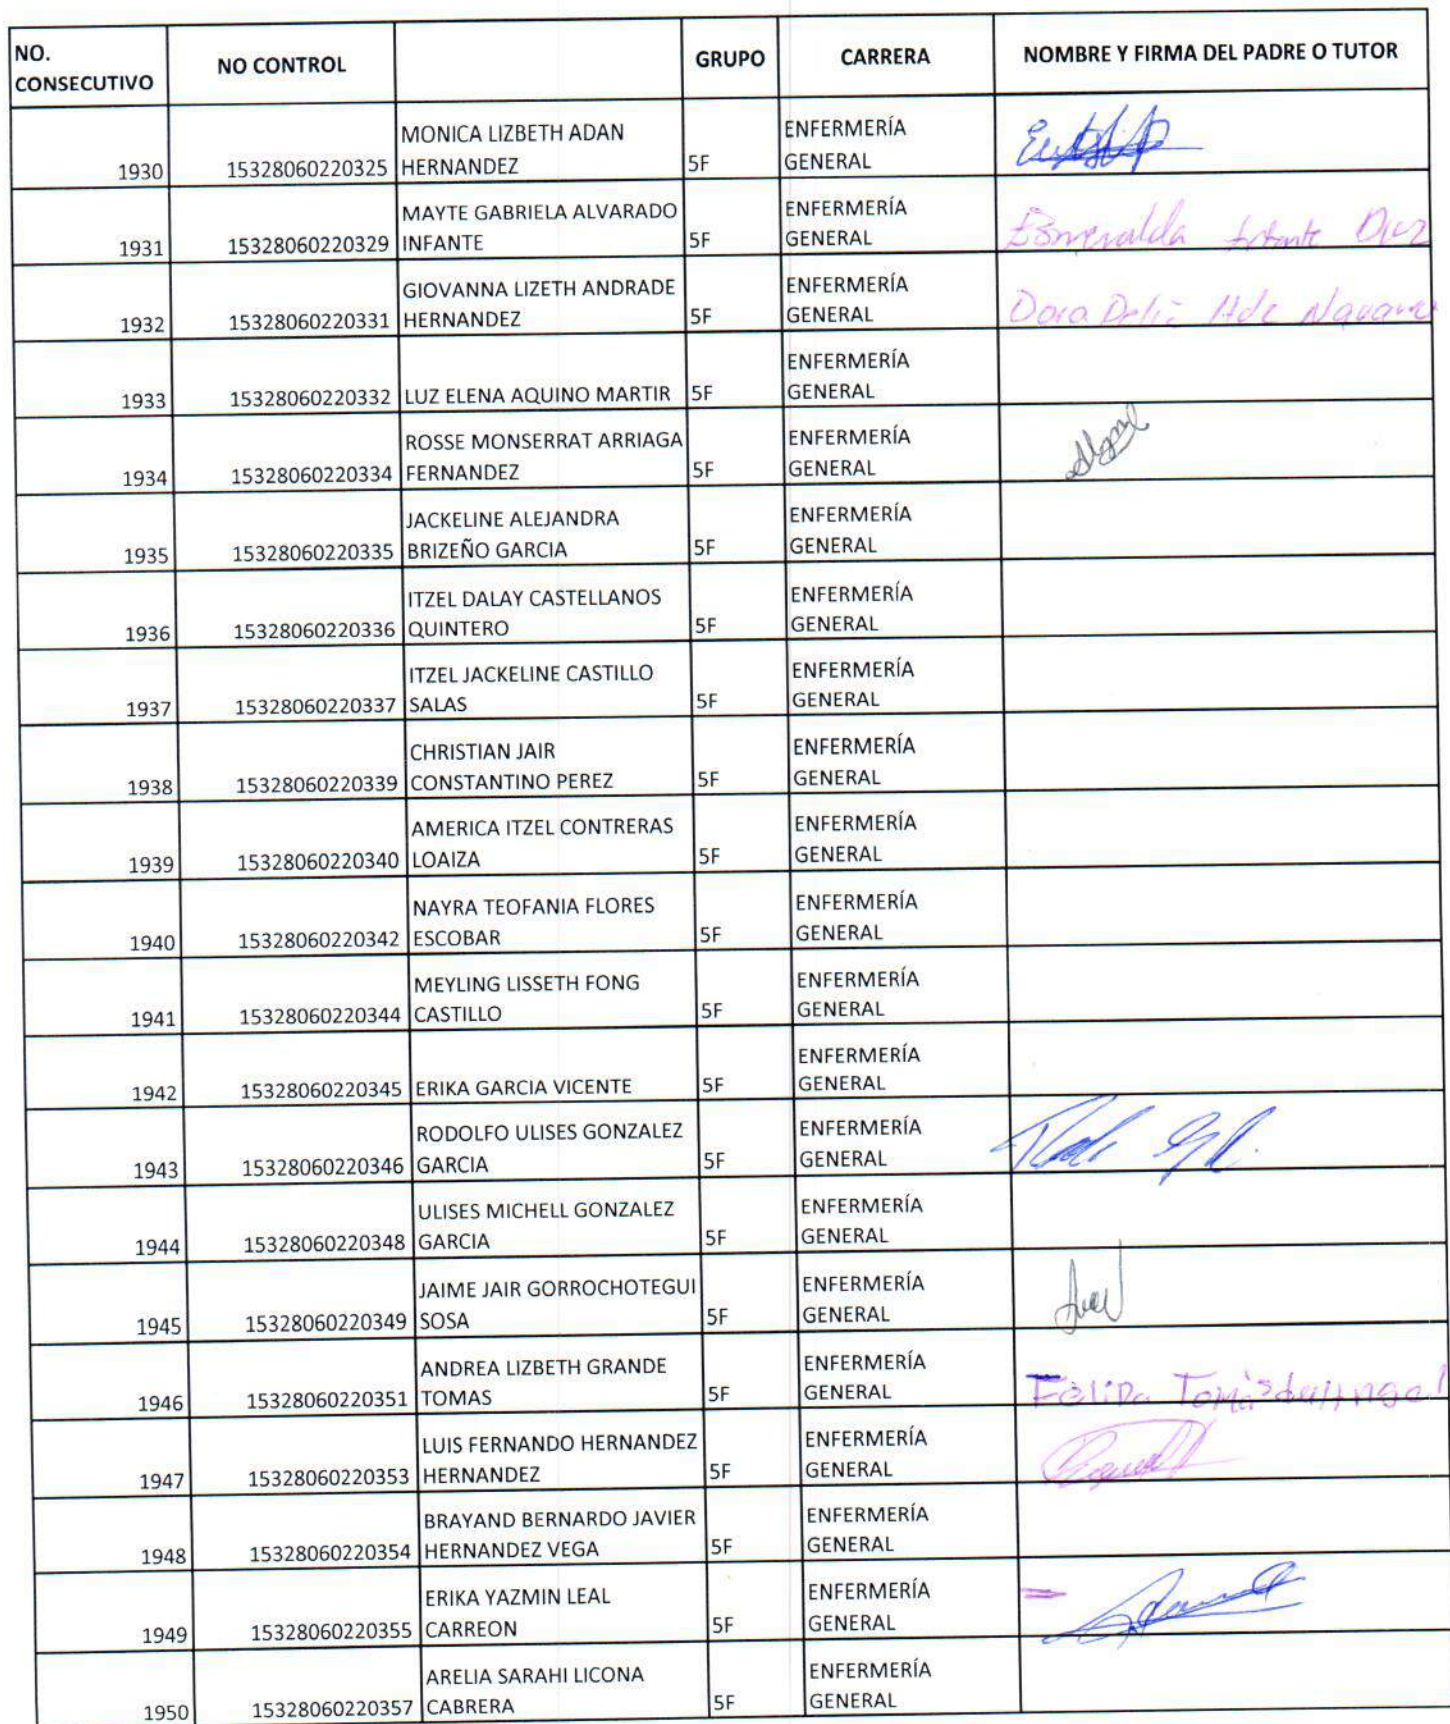 NO. CONSECUTIVO NO CONTROL GRUPO CARRERA NOMBRE Y FIRMA DEL PADRE O TUTOR
1930 15328060220325 MONICA LIZBETH ADAN HERNANDEZ 5F ENFERMERÍA GENERAL
1931 15328060220329 MAYTE GABRIELA ALVARADO INFANTE 5F ENFERMERÍA GENERAL Esmeralda
1932 15328060220331 GIOVANNA LIZETH ANDRADE HERNANDEZ 5F ENFERMERÍA GENERAL Dora
1933 15328060220332 LUZ ELENA AQUINO MARTIR 5F ENFERMERÍA GENERAL
1934 15328060220334 ROSSE MONSERRAT ARRIAGA FERNANDEZ 5F ENFERMERÍA GENERAL
1935 15328060220335 JACKELINE ALEJANDRA BRIZEÑO GARCIA 5F ENFERMERÍA GENERAL
1936 15328060220336 ITZEL DALAY CASTELLANOS QUINTERO 5F ENFERMERÍA GENERAL
1937 15328060220337 ITZEL JACKELINE CASTILLO SALAS 5F ENFERMERÍA GENERAL
1938 15328060220339 CHRISTIAN JAIR CONSTANTINO PEREZ 5F ENFERMERÍA GENERAL
1939 15328060220340 AMERICA ITZEL CONTRERAS LOAIZA 5F ENFERMERÍA GENERAL
1940 15328060220342 NAYRA TEOFANIA FLORES ESCOBAR 5F ENFERMERÍA GENERAL
1941 15328060220344 MEYLING LISSETH FONG CASTILLO 5F ENFERMERÍA GENERAL
1942 15328060220345 ERIKA GARCIA VICENTE 5F ENFERMERÍA GENERAL
1943 15328060220346 RODOLFO ULISES GONZALEZ GARCIA 5F ENFERMERÍA GENERAL
1944 15328060220348 ULISES MICHELL GONZALEZ GARCIA 5F ENFERMERÍA GENERAL
1945 15328060220349 JAIME JAIR GORROCHOTEGUI SOSA 5F ENFERMERÍA GENERAL
1946 15328060220351 ANDREA LIZBETH GRANDE TOMAS 5F ENFERMERÍA GENERAL Felipa Tomás
1947 15328060220353 LUIS FERNANDO HERNANDEZ HERNANDEZ 5F ENFERMERÍA GENERAL
1948 15328060220354 BRAYAND BERNARDO JAVIER HERNANDEZ VEGA 5F ENFERMERÍA GENERAL
1949 15328060220355 ERIKA YAZMIN LEAL CARREON 5F ENFERMERÍA GENERAL
1950 15328060220357 ARELIA SARAHI LICONA CABRERA 5F ENFERMERÍA GENERAL